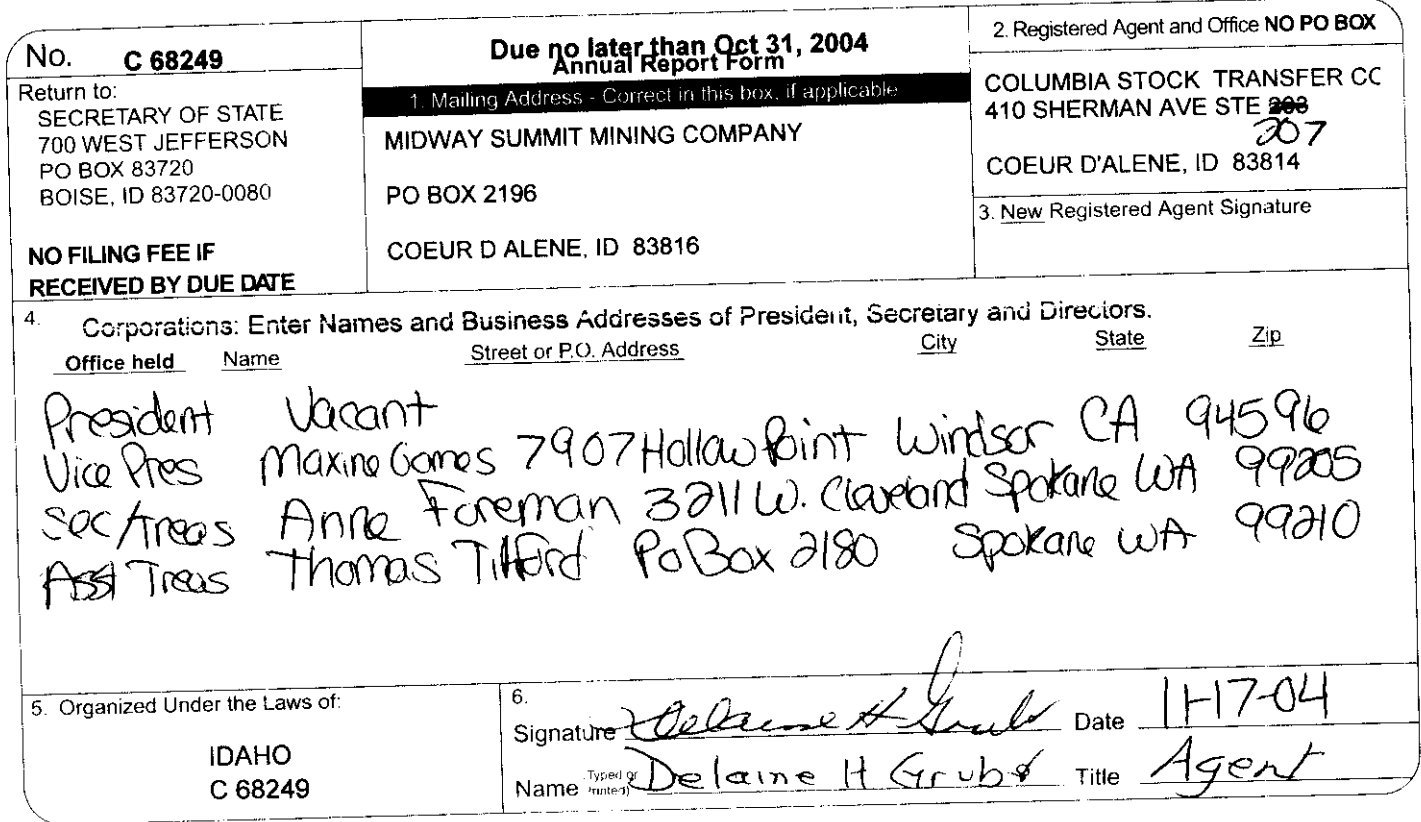 No. C 68249
Return to:
SECRETARY OF STATE
700 WEST JEFFERSON
PO BOX 83720
BOISE, ID 83720-0080
NO FILING FEE IF
RECEIVED BY DUE DATE
Due no later than Oct 31, 2004
Annual Report Form
1. Mailing Address - Correct in this box, if applicable
MIDWAY SUMMIT MINING COMPANY
PO BOX 2196
COEUR D ALENE, ID 83816
2. Registered Agent and Office NO PO BOX
COLUMBIA STOCK TRANSFER CC
410 SHERMAN AVE STE
207
COEUR D'ALENE, ID 83814
3. New Registered Agent Signature
4. Corporations: Enter Names and Business Addresses of President, Secretary and Directors.
Office held Name Street or P.O. Address City State Zip
President Vacant
Vice Pres Maxine Gomes 7907 Hollow Point Windsor CA 94596
Sec/treas Anne Foreman 3211 W. Cleveland Spokane WA 99205
Asst Treas Thomas Tilford Po Box 2180 Spokane WA 99210
5. Organized Under the Laws of:
IDAHO
C 68249
6.
Signature Delaine H Grub Date 11-17-04
Name (Typed or Printed) Delaine H Grub Title Agent